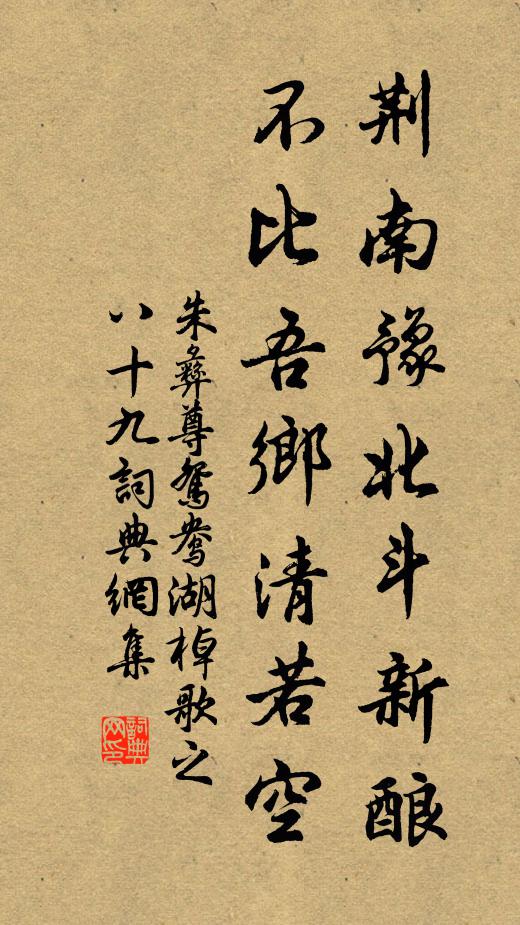 荆南豫北斗新酿
不比吾鄉清若空
朱彝尊鴛鴦湖棹歌之
八十九詞典網集
詞典
网印